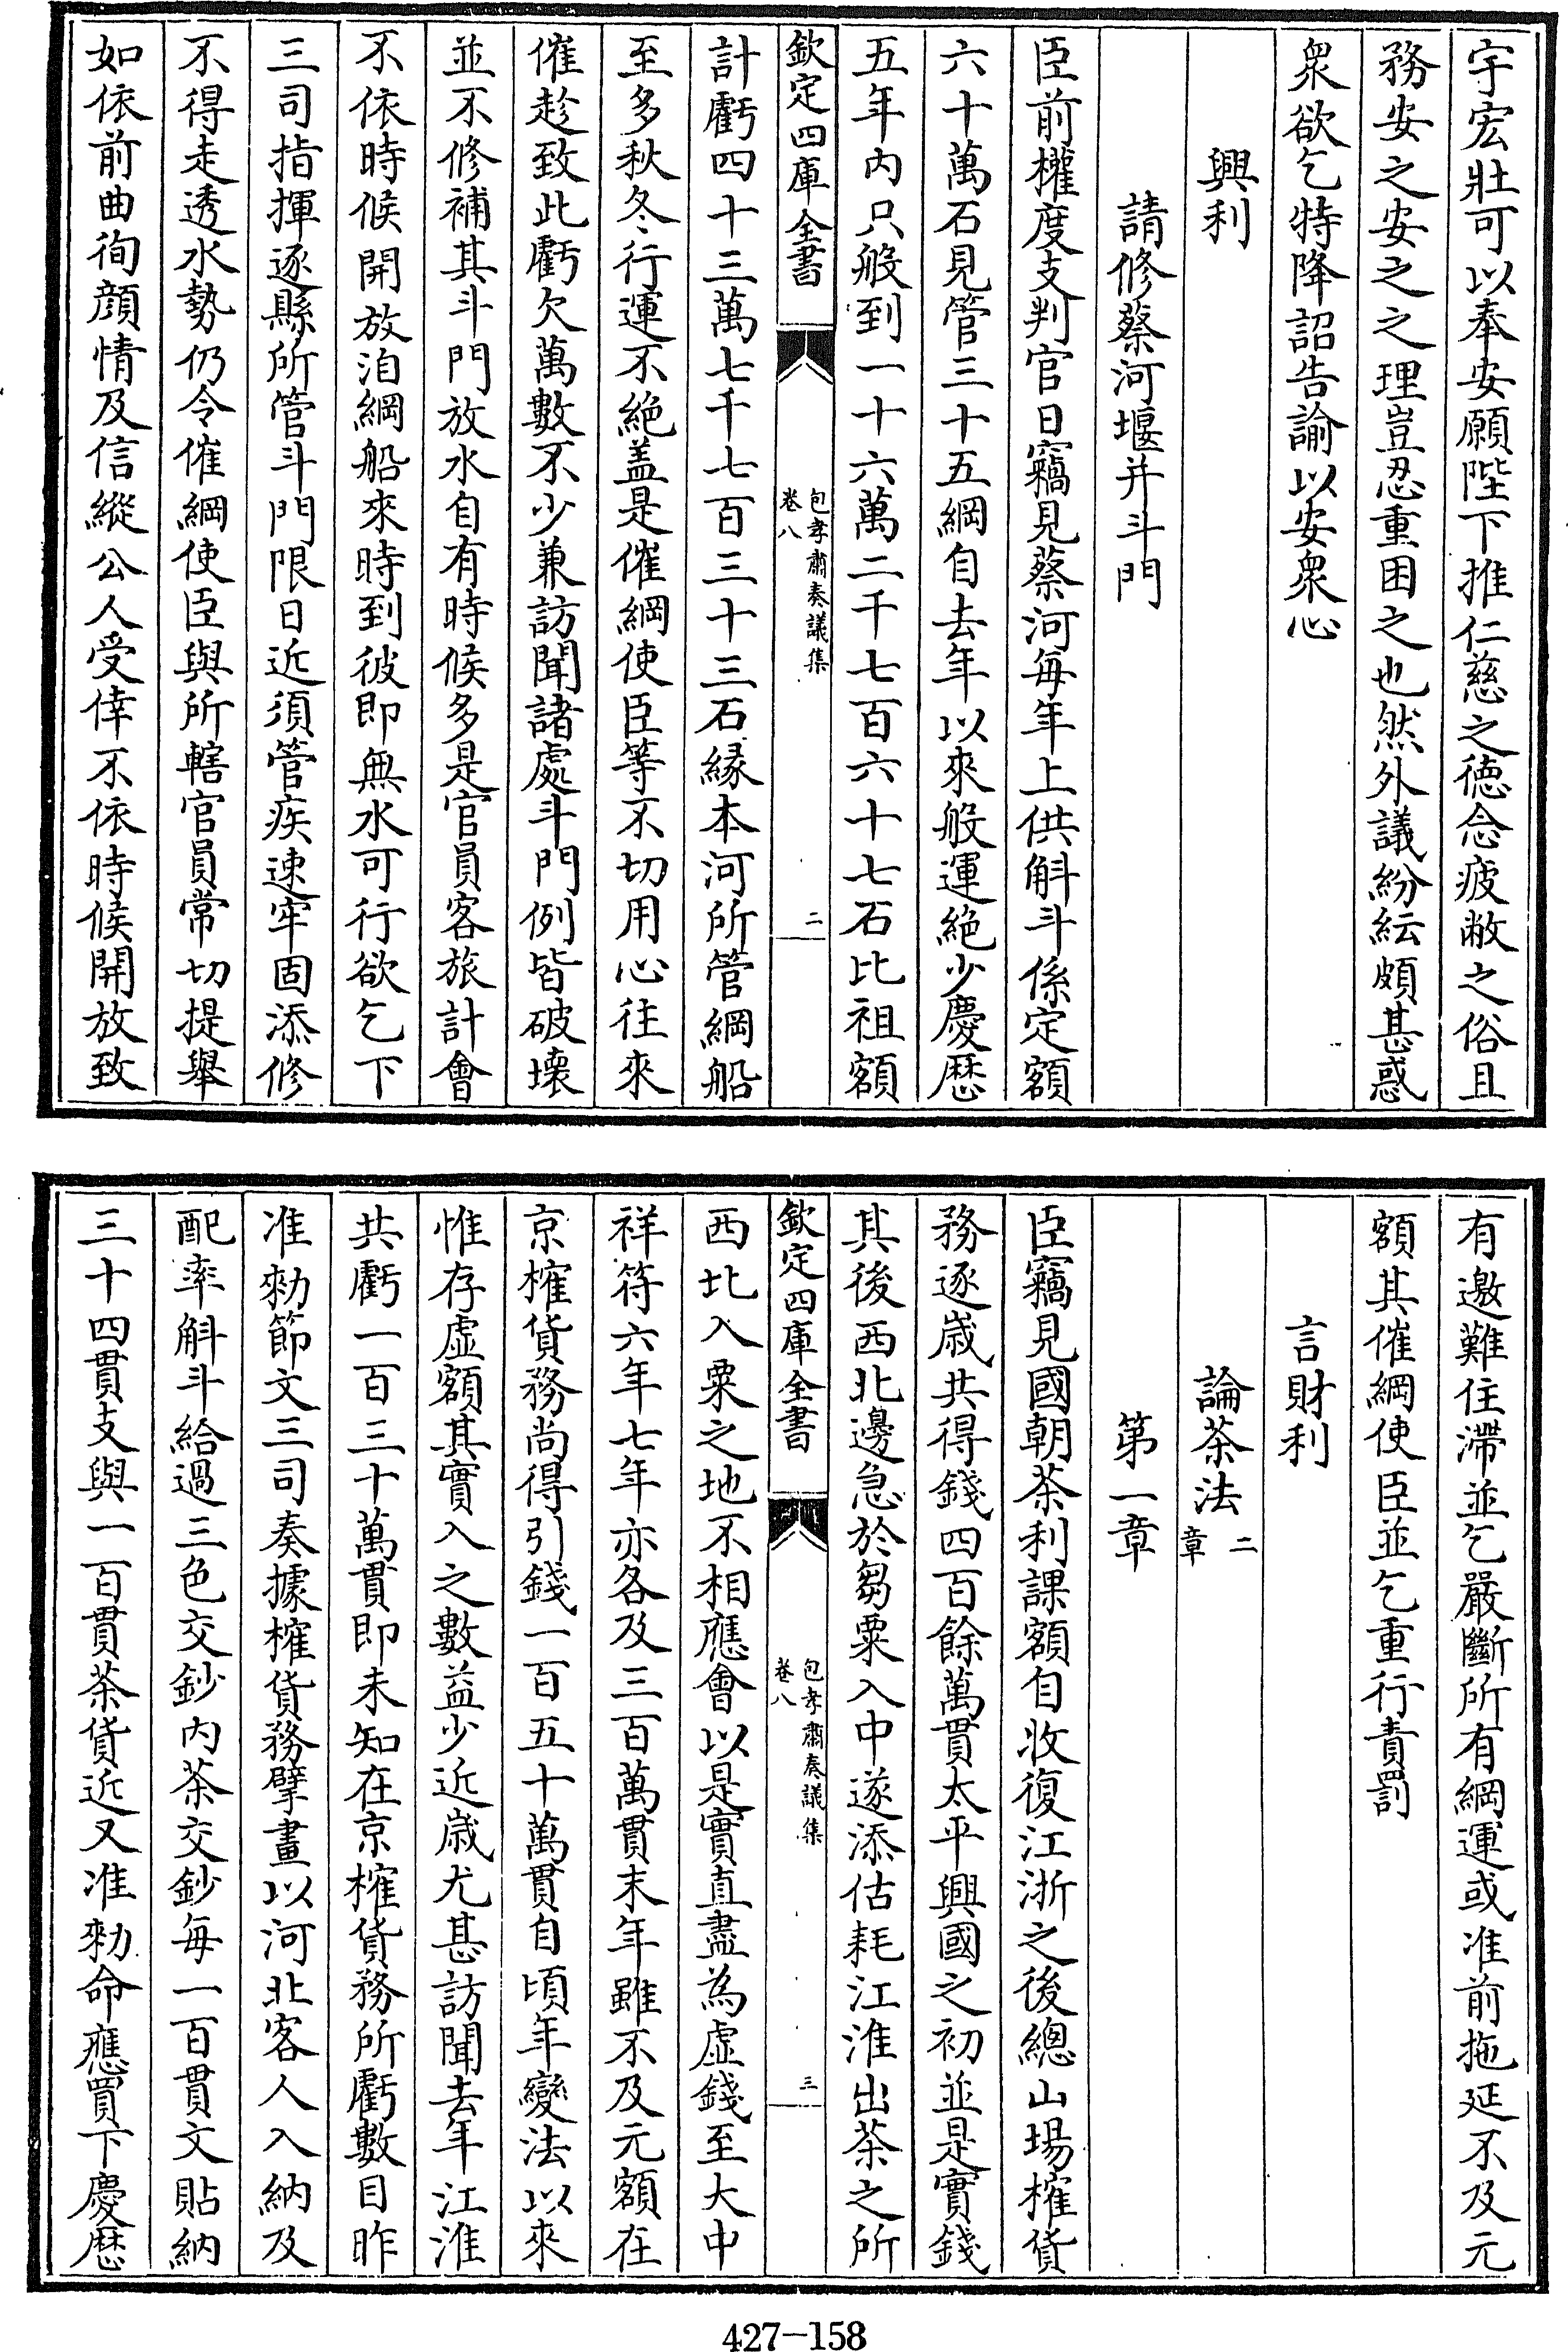 宇宏壯可以奉安願陛下推仁慈之德念疲敝之俗且
務安之安之之理豈忍重困之也然外議紛紜頗甚惑
衆欲乞特降詔告諭以安衆心
興利
請修蔡河堰并斗門
臣前權度支判官日竊見蔡河每年上供斛斗係定額
六十萬石見管三十五綱自去年以來般運絶少慶厯
五年内只般到一十六萬二千七百六十七石比祖額
欽定四庫全書
包孝肅奏議集
卷八
二
計虧四十三萬七千七百三十三石緣本河所管綱船
至多秋冬行運不絶盖是催綱使臣等不切用心往來
催趁致此虧欠萬數不少兼訪聞諸處斗門例皆破壞
並不修補其斗門放水自有時候多是官員客旅計會
不依時候開放洎綱船來時到彼即無水可行欲乞下
三司指揮逐縣所管斗門限日近須管疾速牢固添修
不得走透水勢仍令催綱使臣與所轄官員常切提舉
如依前曲徇顔情及信縱公人受倖不依時候開放致
有邀難住滯並乞嚴斷所有綱運或准前拖延不及元
額其催綱使臣並乞重行責罰
言財利
論茶法二章
第一章
臣竊見國朝茶利課額自收復江浙之後總山場榷貨
務逐歲共得錢四百餘萬貫太平興國之初並是實錢
其後西北邊急於芻粟入中遂添估耗江淮出茶之所
欽定四庫全書
包孝肅奏議集
卷八
三
西北入粟之地不相應會以是實直盡為虛錢至大中
祥符六年七年亦各及三百萬貫末年雖不及元額在
京榷貨務尚得引錢一百五十萬貫自頃年變法以來
惟存虛額其實入之數益少近歲尤甚訪聞去年江淮
共虧一百三十萬貫即未知在京榷貨務所虧數目昨
准勑節文三司奏據榷貨務擘畫以河北客人入納及
配率斛斗給過三色交鈔内茶交鈔每一百貫文貼納
三十四貫支與一百貫茶貨近又准勑命應買下慶厯
427-158